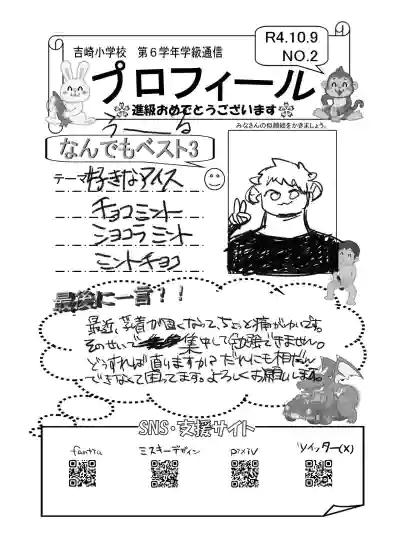 吉崎小学校 第6学年学級通信
R4.10.9
NO.2
プロフィール
進級おめでとうございます
うーる
みなさんの似顔絵をかきましょう。
なんでもベスト3
テーマ 好きなアイス
チョコミント
ショコラミント
ミントチョコ
最後に一言!!
最近、
になって、ちょっと痛がゆいです。
そのせいで 集中して勉強できません。
どうすれば直りますか?だれにも相だん
できなくて困ってます。よろしくお願いします。
SNS・支援サイト
fantia
ミスキーデザイン
pixiv
ツイッター(X)